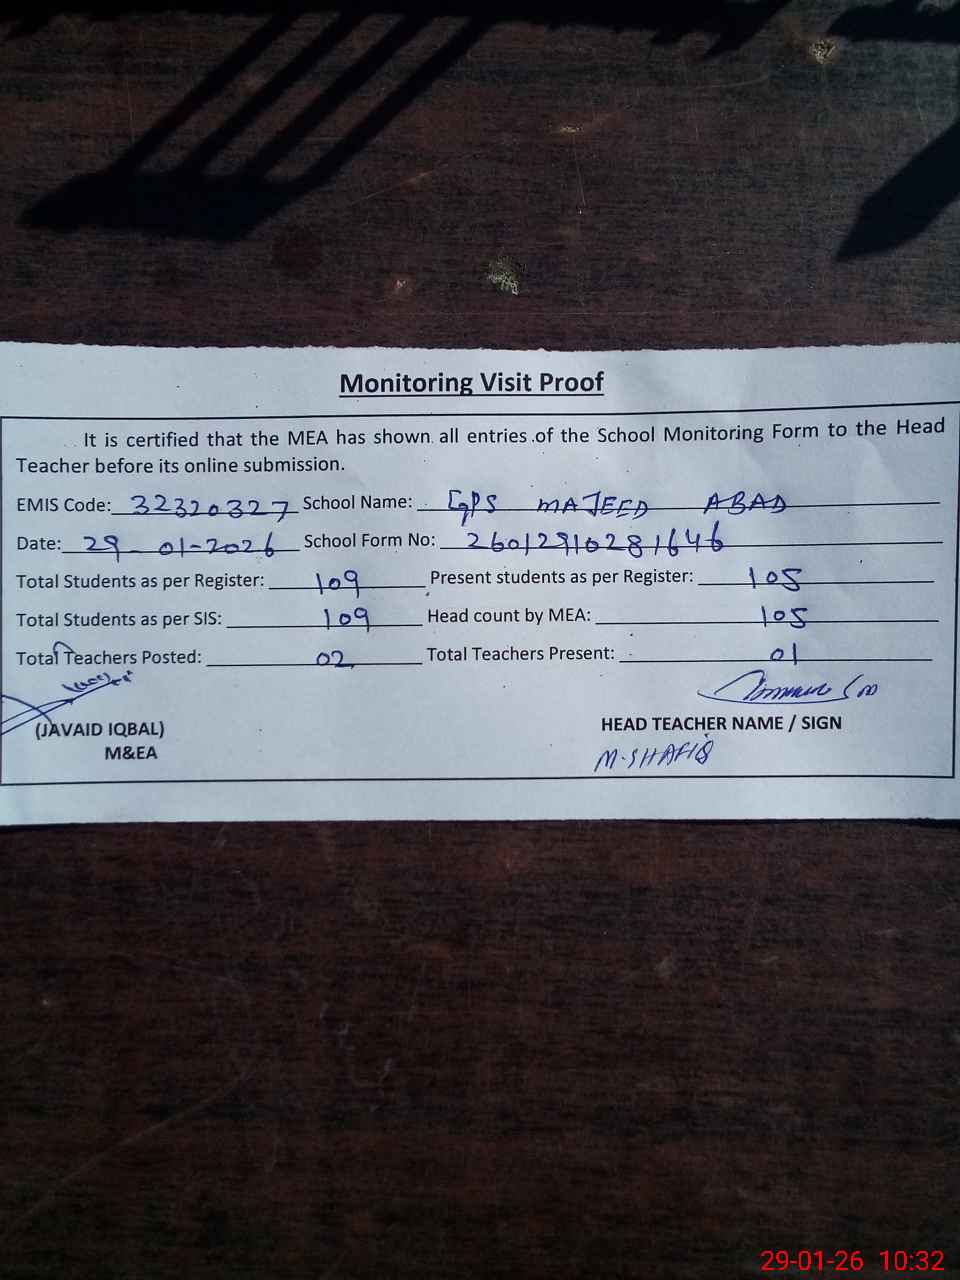 Monitoring Visit Proof
It is certified that the MEA has shown all entries of the School Monitoring Form to the Head
Teacher before its online submission.
EMIS Code: 32320327 School Name: GPS MAJEED ABAD
Date: 29-01-2026 School Form No: 26012910281646
Total Students as per Register: 109 Present students as per Register: 105
Total Students as per SIS: 109 Head count by MEA: 105
Total Teachers Posted: 02 Total Teachers Present: 01
(JAVAID IQBAL) HEAD TEACHER NAME / SIGN
M&EA M.SHAFIQ
29-01-26 10:32